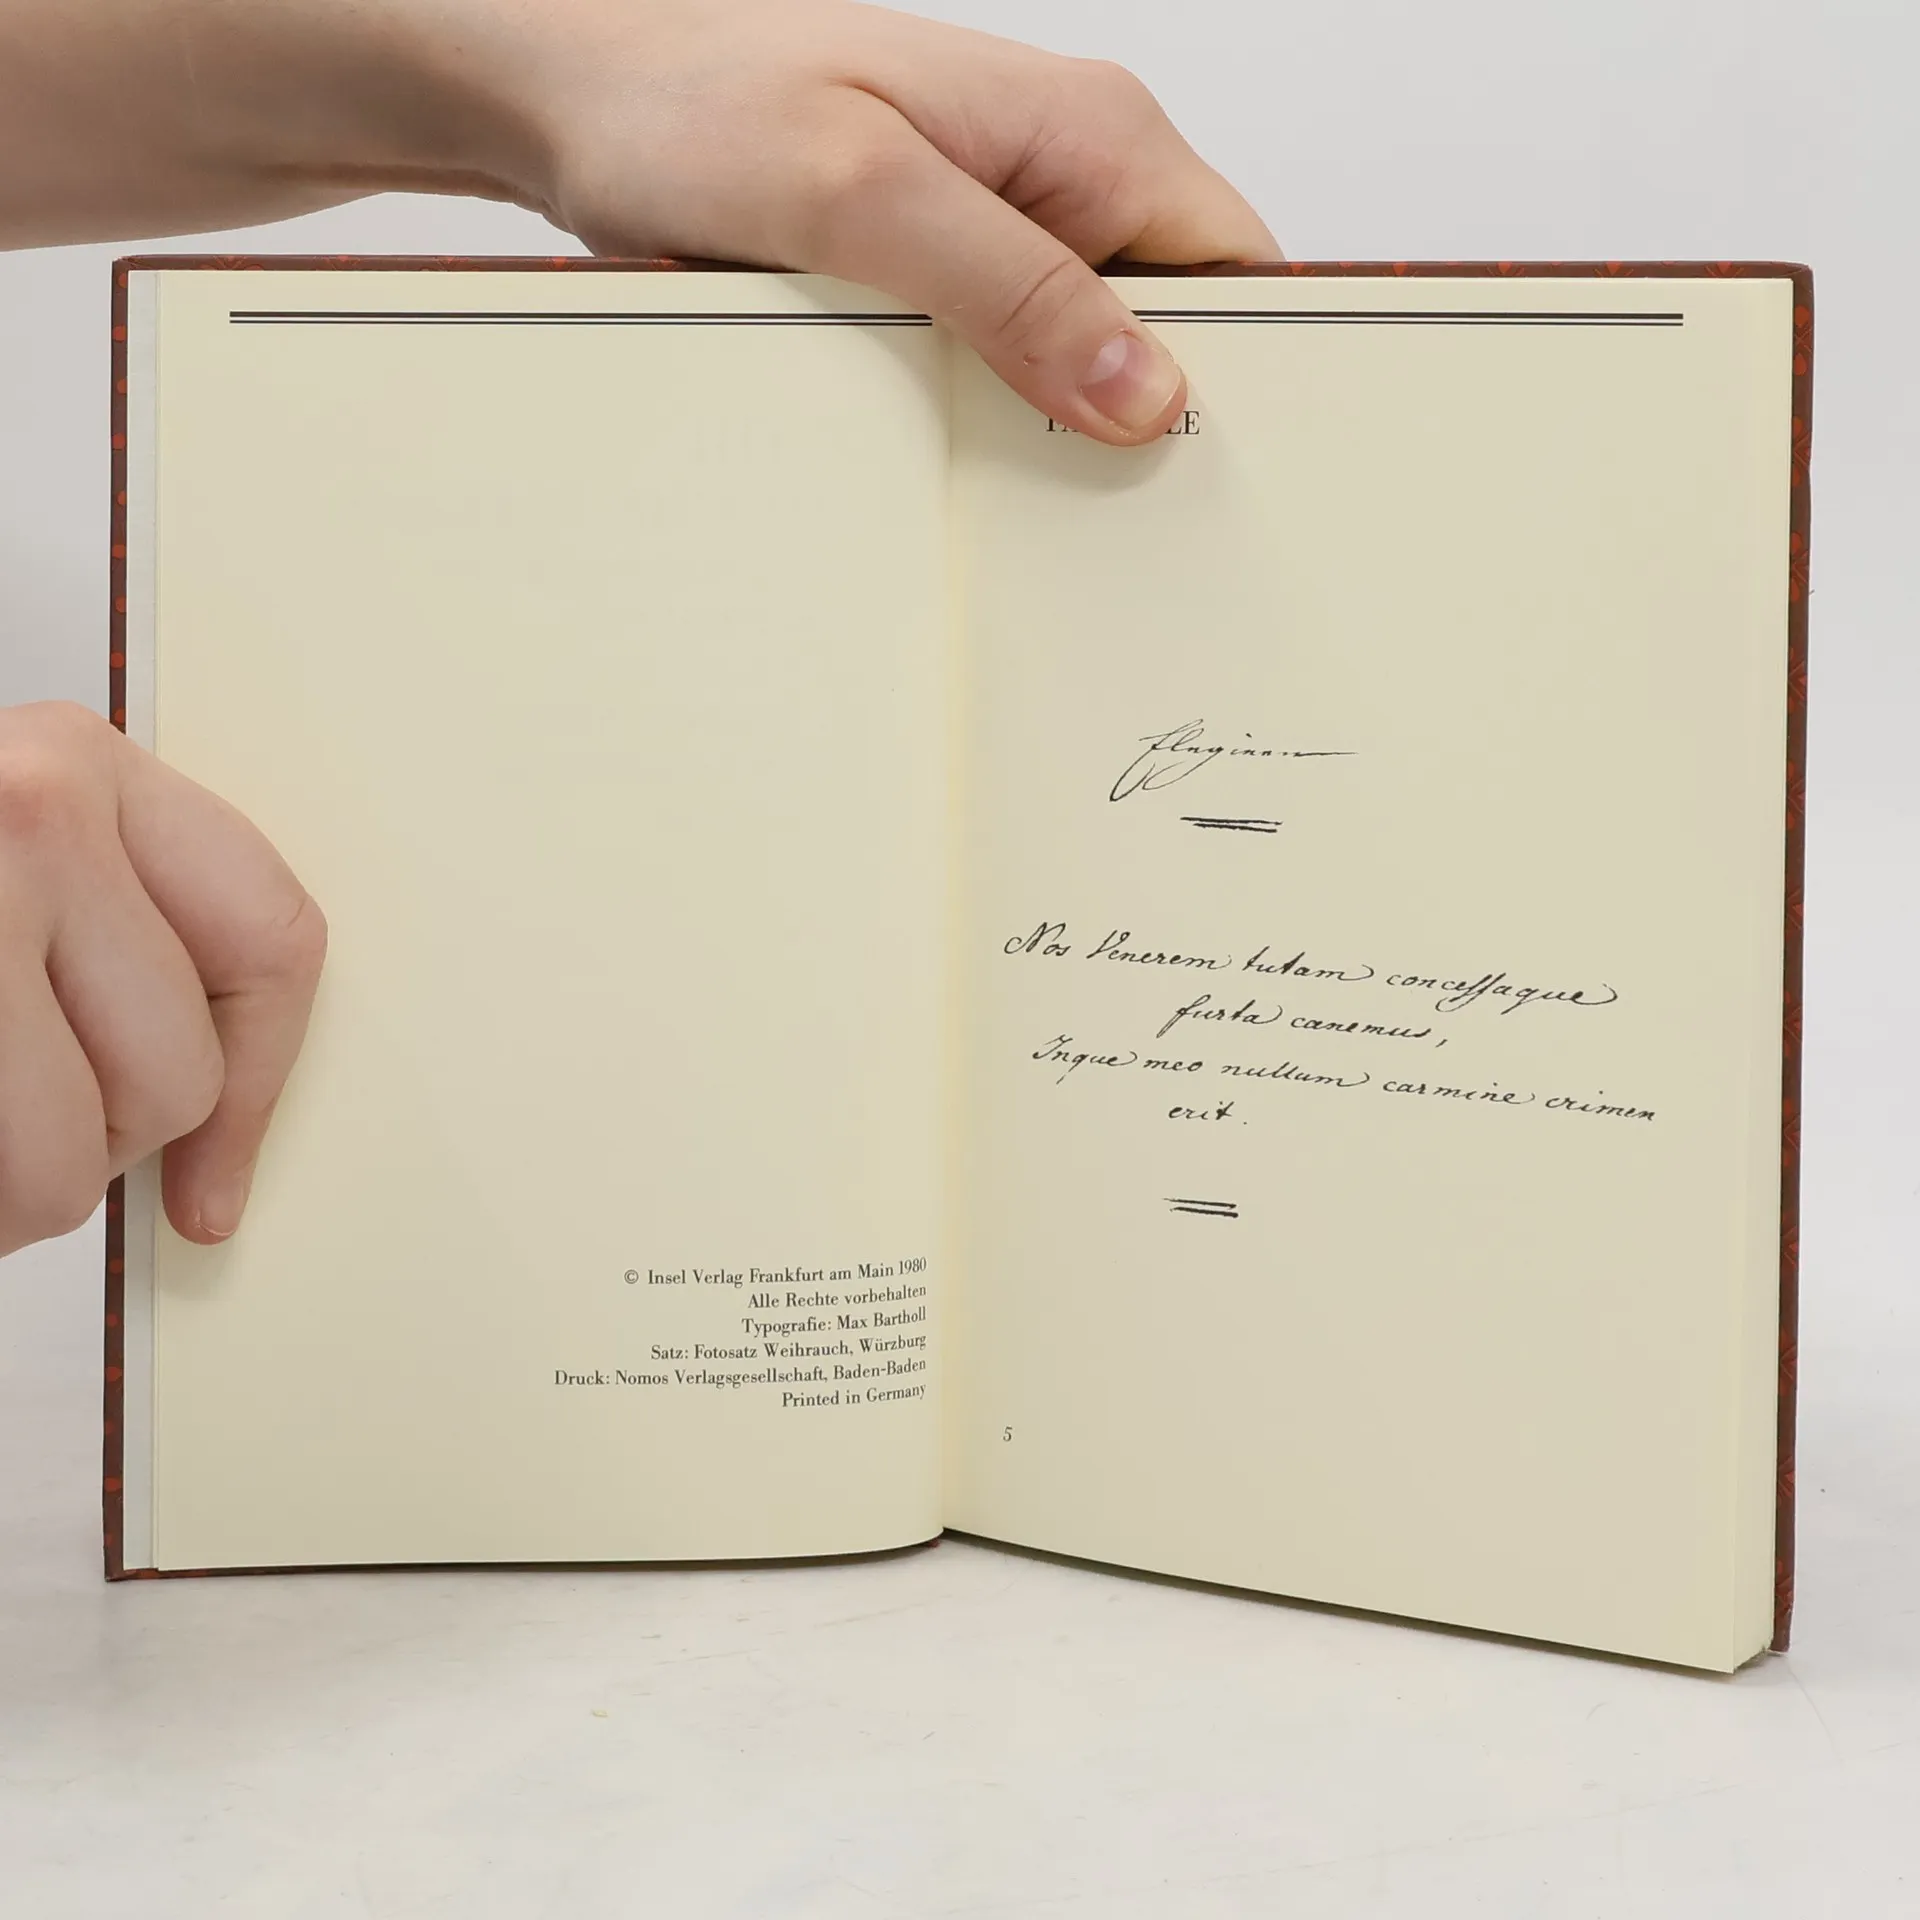 © Insel Verlag Frankfurt am Main 1980
Alle Rechte vorbehalten
Typografie: Max Bartholl
Satz: Fotosatz Weihrauch, Würzburg
Druck: Nomos Verlagsgesellschaft, Baden-Baden
Printed in Germany
Elegieen
Nos Venerem tutam concessaque
furta canemus,
Inque meo nullum carmine crimen
erit.
5